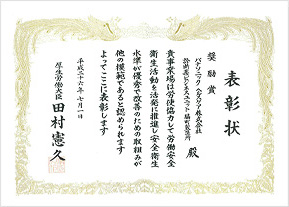 表彰状
奨励賞
パナソニックヘルスケア株式会社
診断薬ビジネスユニット脇町製造所
殿
貴事業場は労使協力して労働安全
衛生活動を活発に推進し安全衛生
水準が優秀で改善のための取組みが
他の模範であると認められます
よってここに表彰します
平成二十六年七月一日
厚生労働大臣
田村憲久